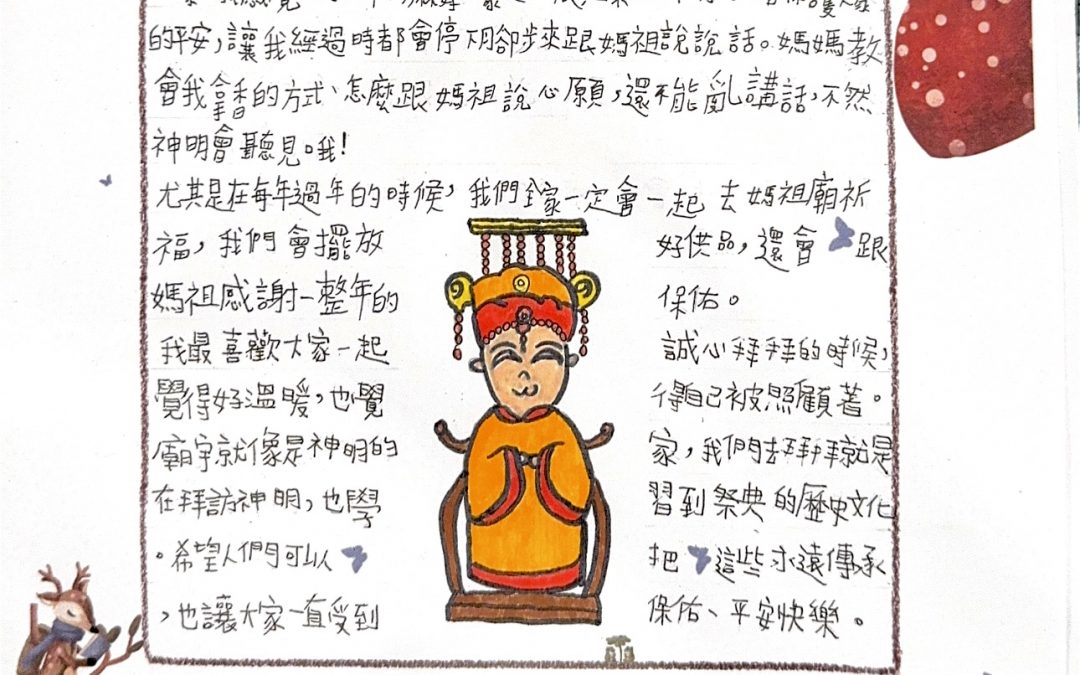 的平安，讓我經過時都會停下卻步來跟媽祖說說話。媽媽教
會我拿香的方式、怎麼跟媽祖說心願，還不能亂講話，不然
神明會聽見哦！
尤其是在每年過年的時候，我們全家一定會一起去媽祖廟祈
福，我們會擺放好供品，還會跟
媽祖感謝一整年的保佑。
我最喜歡大家一起誠心拜拜的時候，
覺得好溫暖，也覺得自己被照顧著。
廟宇就像是神明的家，我們去拜拜就是
在拜訪神明，也學習到祭典的歷史文化
。希望人們可以把這些永遠傳承
，也讓大家一直受到保佑、平安快樂。